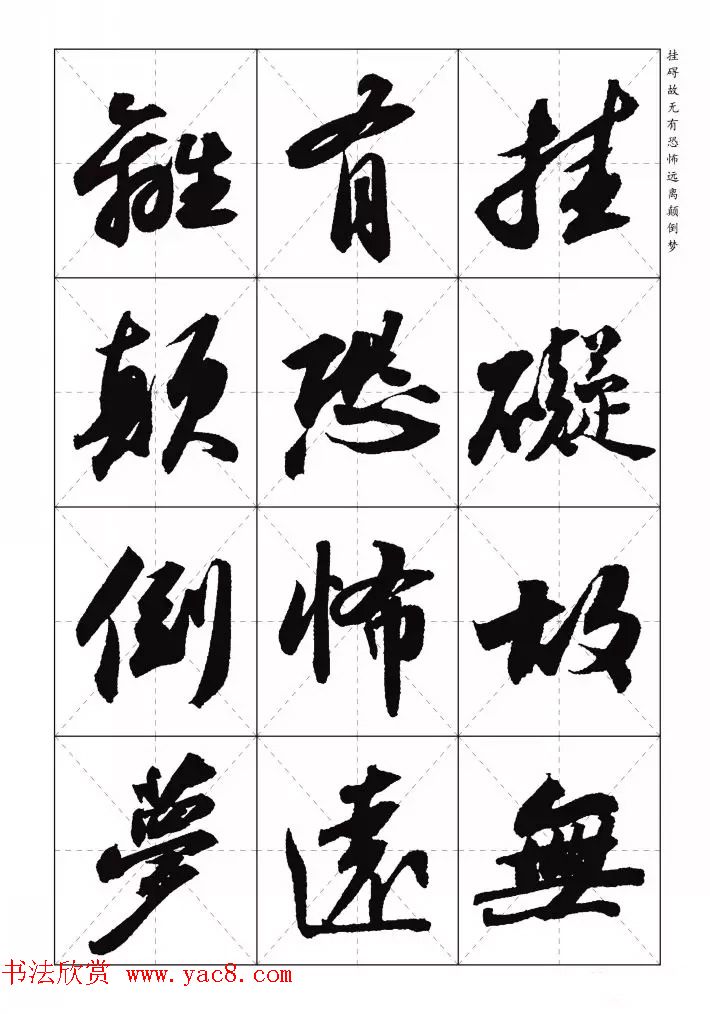 挂碍故无有恐怖远离颠倒梦
挂礙故無
有恐怖遠
離顛倒夢
书法欣赏 www.yac8.com